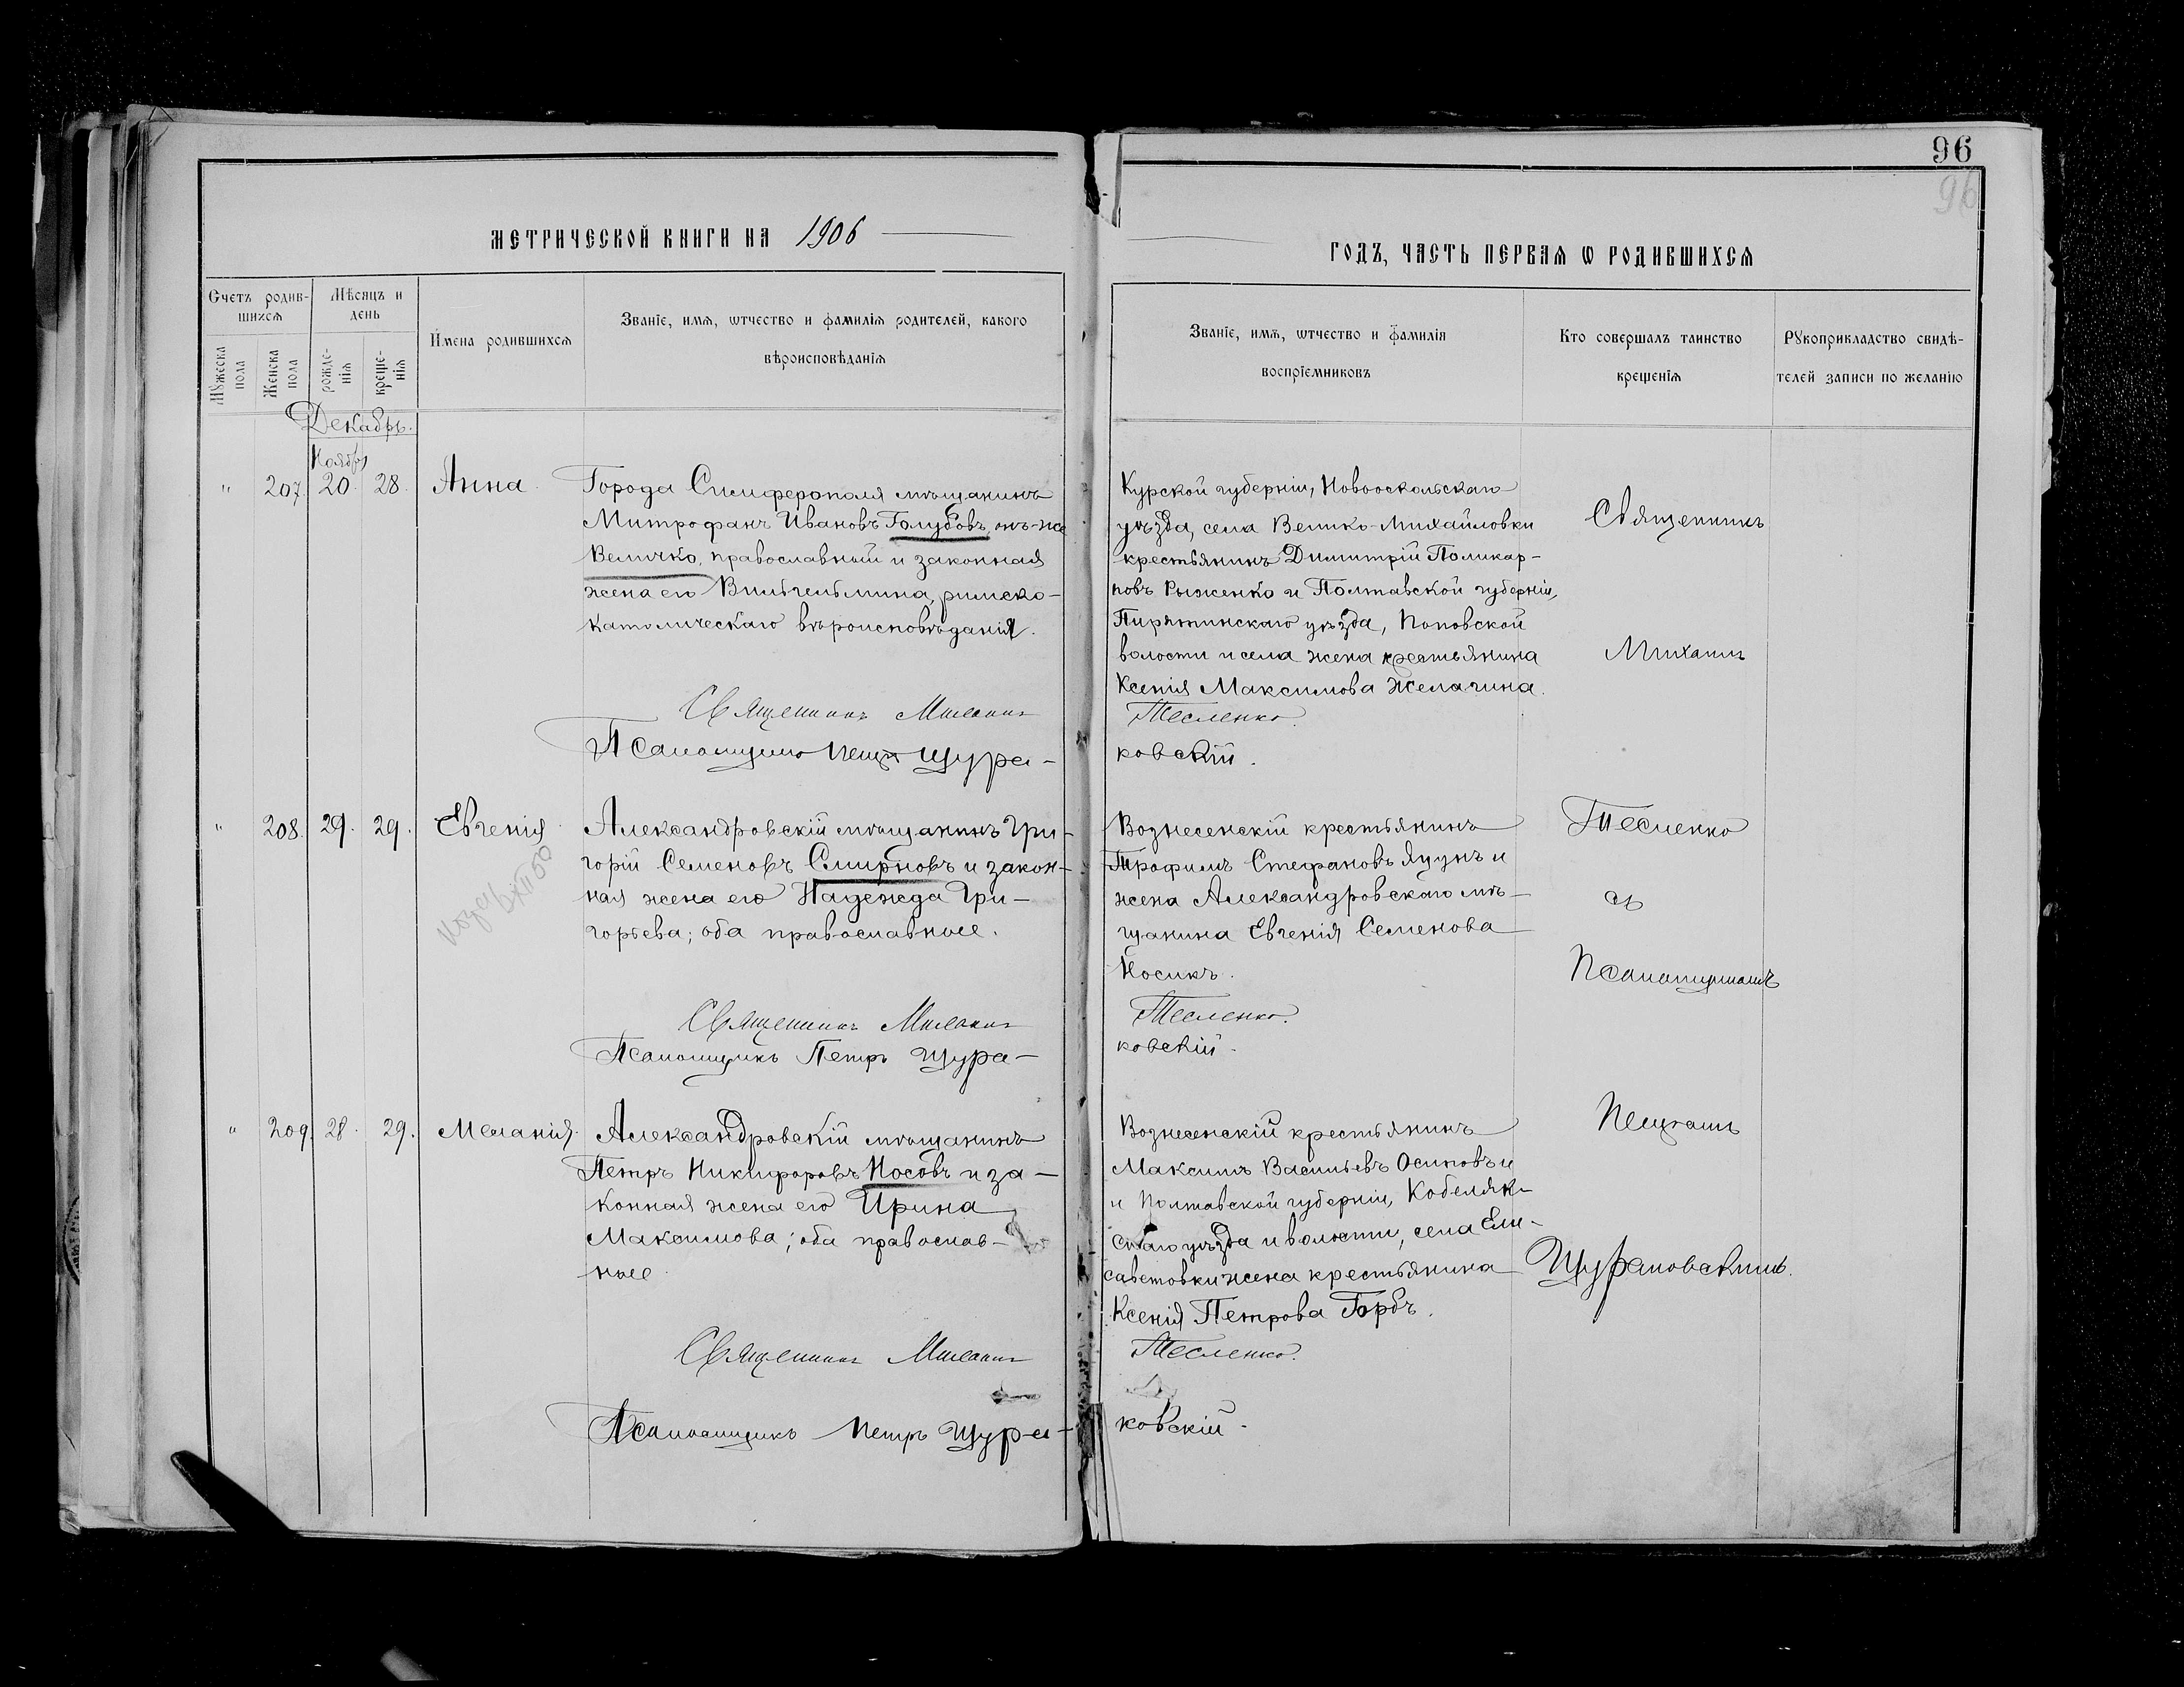 96
96
МЕТРИЧЕСКОЙ КНИГИ НА 1906
ГОДЪ, ЧАСТЬ ПЕРВАЯ Ѡ РОДИВШИХСЯ
Счетъ родив-
шихся
Мѣсяцъ и
день
Мꙋжеска
пола
Женска
пола
рожде-
нїя
креще-
нїя
Имена родившихся
Званїе, имя, ѡтчество и фамилїя родителей, какого
вѣроисповѣданїя
Званїе, имя, ѡтчество и фамилїя
воспрїемниковъ
Кто совершалъ таинство
крещенїя
Рꙋкоприкладство свидѣ-
телей записи по желанїю
Декабрь.
Ноября
" 207. 20. 28. Анна.
Города Симферополя мѣщанинъ
Митрофанъ Ивановъ Голубовъ, онъ-же
Величко, православный и законная
жена его Вильгельмина, римско-
католическаго вѣроисповѣданія.
Священникъ Михаилъ
Псаломщикъ Петръ Щура-
Курской губерніи, Новооскольскаго
уѣзда, села Велико-Михайловки
крестьянинъ Димитрій Поликар-
повъ Рыженко и Полтавской губерніи,
Пирятинскаго уѣзда, Поповской
волости и села жена крестьянина
Ксенія Максимова Желагина.
Тесленко.
ковскій.
" 208. 29. 29. Евгенія
Александровскій мѣщанинъ Гри-
горій Семеновъ Смирновъ и закон-
ная жена его Надежда Гри-
горьева; оба православные.
Священникъ Михаилъ
Псаломщикъ Петръ Щура-
Вознесенскій крестьянинъ
Трофимъ Стефановъ Яцунъ и
жена Александровскаго мѣ-
щанина Евгенія Семенова
Носикъ.
Тесленко.
ковскій.
" 209. 28. 29. Меланія.
Александровскій мѣщанинъ
Петръ Никифоровъ Носовъ и за-
конная жена его Ирина
Максимова; оба православ-
ные.
Священникъ Михаилъ
Псаломщикъ Петръ Щура-
Вознесенскій крестьянинъ
Максимъ Васильевъ Осиповъ и
и Полтавской губерніи, Кобеляк-
скаго уѣзда и волости, села Ели-
саветовки жена крестьянина
Ксенія Петрова Горбъ.
Тесленко.
ковскій.
Священникъ
Михаилъ
Тесленко
съ
Псаломщикомъ
Петромъ
Щураковскимъ.